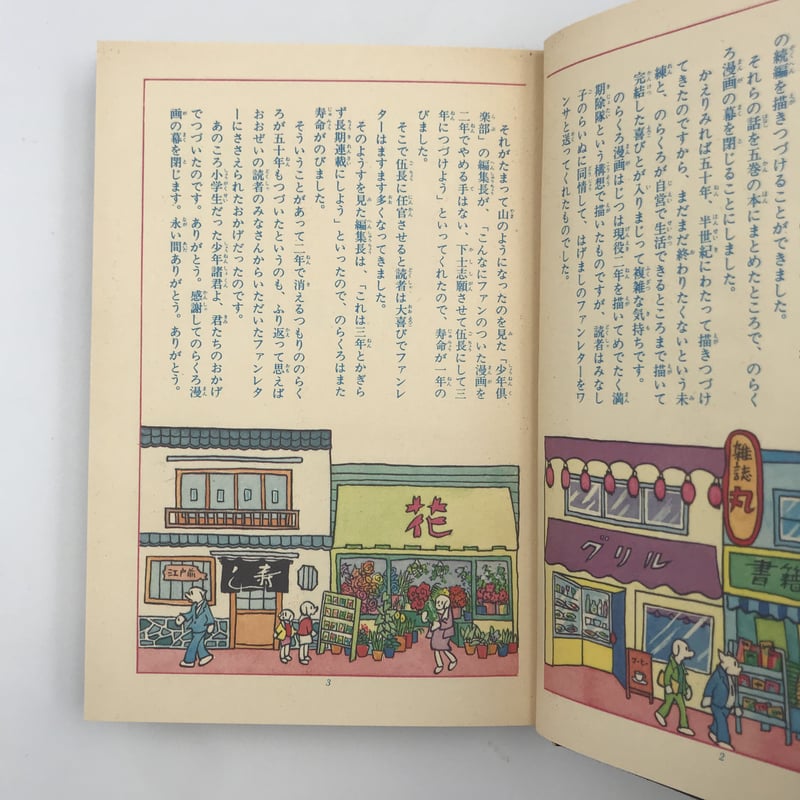 の続編を描きつづけることができました。
それらの話を五巻の本にまとめたところで、のらく
ろ漫画の幕を閉じることにしました。
かえりみれば五十年、半世紀にわたって描きつづけ
てきたのですから、まだまだ終わりたくないという未
練と、のらくろが自営で生活できるところまで描いて
完結した喜びとが入りまじって複雑な気持ちです。
のらくろ漫画はじつは現役二年を描いてめでたく満
期除隊という構想で描いたものですが、読者はみなし
子のらいぬに同情して、はげましのファンレターをワ
ンサと送ってくれたものでした。
雑誌
丸
グリル
書籍
コーヒー
2
それがたまって山のようになったのを見た「少年倶
楽部」の編集長が、「こんなにファンのついた漫画を
二年でやめる手はない、下士志願させて伍長にして三
年につづけよう」といってくれたので、寿命が一年の
びました。
そこで伍長に任官させると読者は大喜びでファンレ
ターはますます多くなってきました。
そのようすを見た編集長は、「これは三年とかぎら
ず長期連載にしよう」といったので、のらくろはまた
寿命がのびました。
そういうことがあって二年で消えるつもりののらく
ろが五十年もつづいたというのも、ふり返って思えば
おおぜいの読者のみなさんからいただいたファンレタ
ーにささえられたおかげだったのです。
あのころ小学生だった少年諸君よ、君たちのおかげ
でつづいたのです。ありがとう。感謝してのらくろ漫
画の幕を閉じます。永い間ありがとう。ありがとう。
花
寿し
江戸前
3